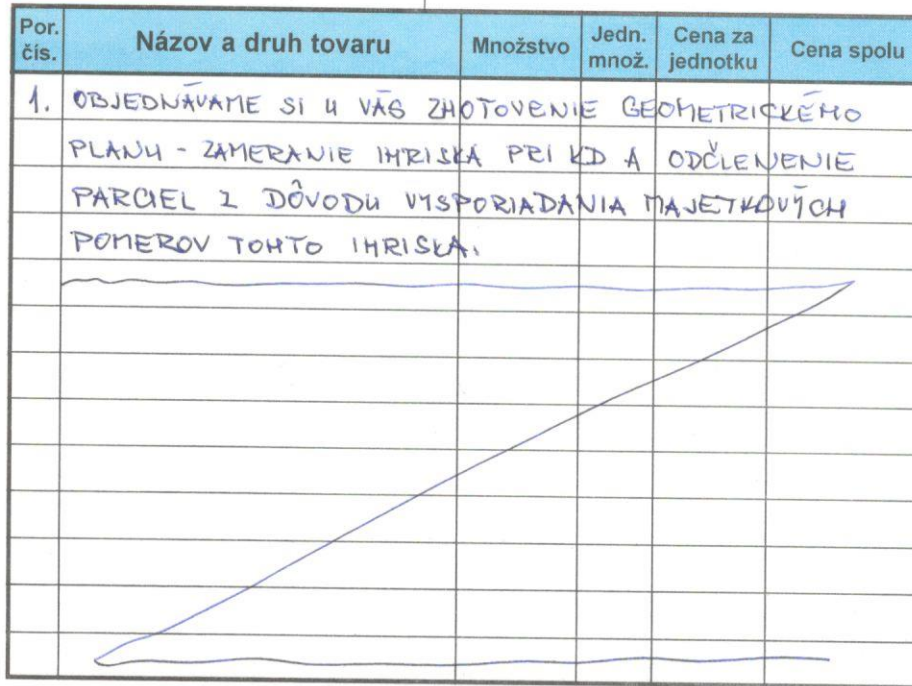 Por. čís. Názov a druh tovaru Množstvo Jedn. množ. Cena za jednotku Cena spolu
1. OBJEDNÁVAME SI U VÁS ZHOTOVENIE GEOMETRICKÉHO
PLANU - ZAMERANIE IHRISKA PRI KD A ODČLENENIE
PARCIEL Z DÔVODU VYSPORIADANIA MAJETKOVÝCH
POMEROV TOHTO IHRISKA.